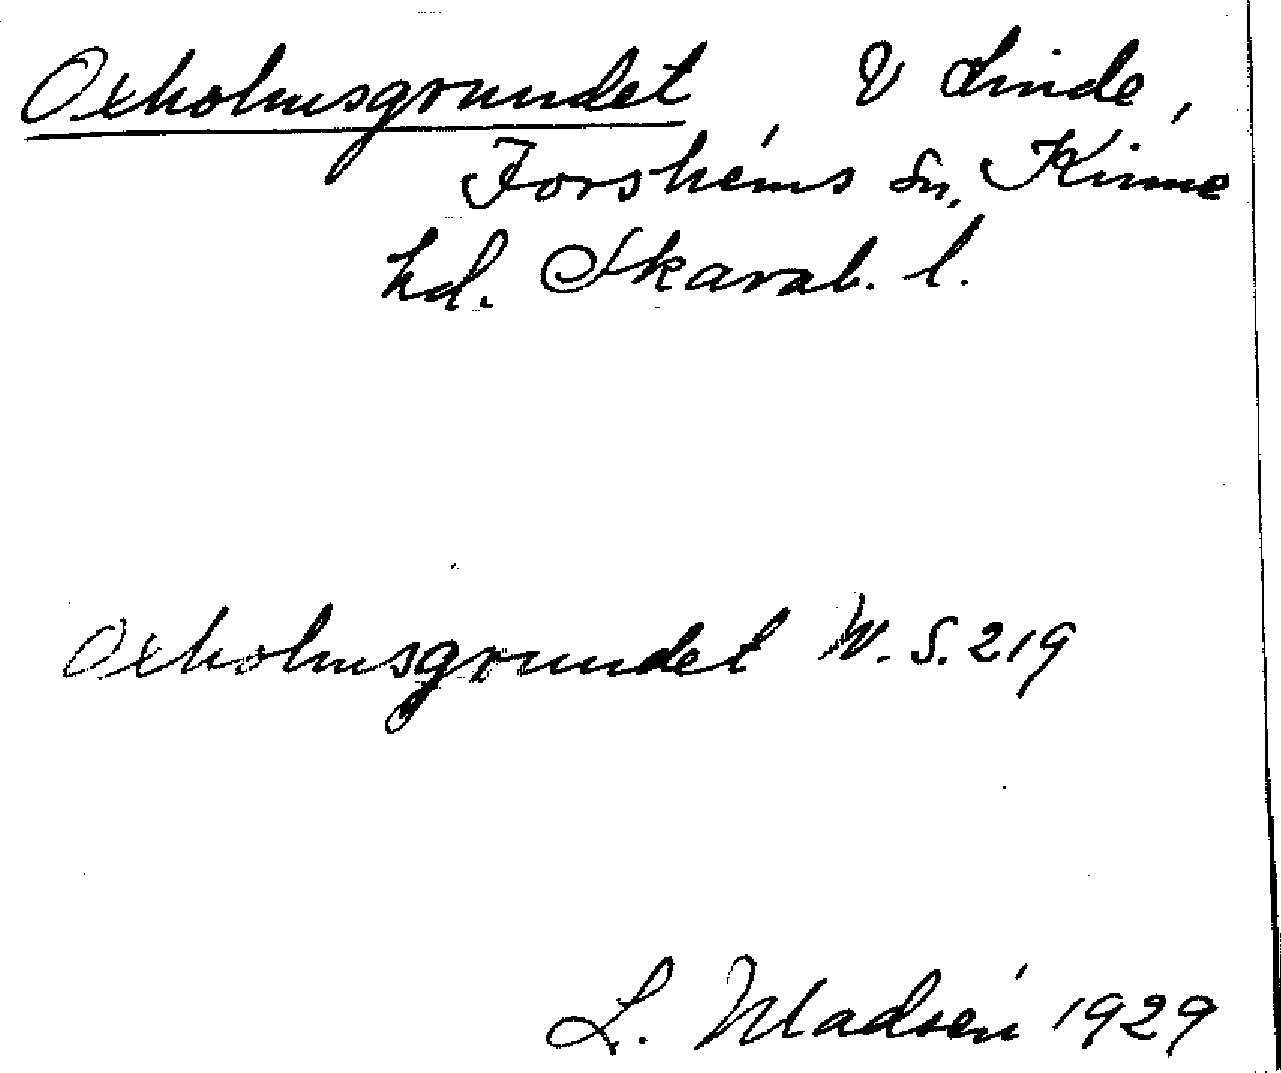 Oxholmsgrundet V Linde,
Forshems sn, Kinne
hd. Skarab. l.
Oxholmsgrundet W. S. 219
L. Madsén 1929